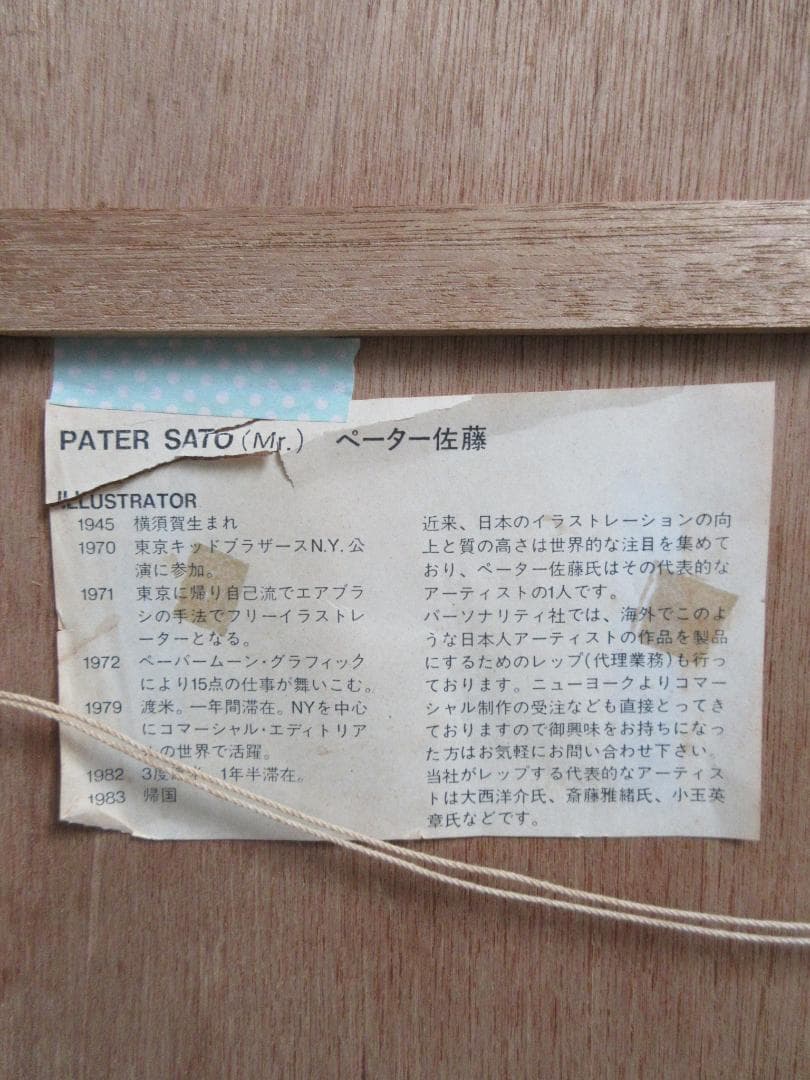 PATER SATO (Mr.) ペーター佐藤
ILLUSTRATOR
1945 横須賀生まれ
1970 東京キッドブラザースN.Y.公
演に参加。
1971 東京に帰り自己流でエアブラ
シの手法でフリーイラストレ
ーターとなる。
1972 ペーパームーン・グラフィック
により15点の仕事が舞いこむ。
1979 渡米。一年間滞在。NYを中心
にコマーシャル・エディトリア
の世界で活躍。
1982 3度 1年半滞在。
1983 帰国
近来、日本のイラストレーションの向
上と質の高さは世界的な注目を集めて
おり、ペーター佐藤氏はその代表的な
アーティストの1人です。
パーソナリティ社では、海外でこのよ
うな日本人アーティストの作品を製品
にするためのレップ(代理業務)も行っ
ております。ニューヨークよりコマー
シャル制作の受注なども直接とってき
ておりますので御興味をお持ちになっ
た方はお気軽にお問い合わせ下さい。
当社がレップする代表的なアーティス
トは大西洋介氏、斎藤雅緒氏、小玉英
章氏などです。